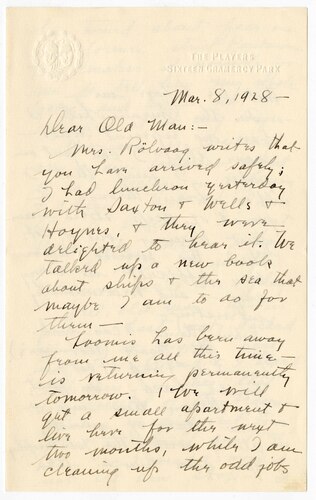 THE PLAYERS
SIXTEEN GRAMERCY PARK
Mar. 8, 1928 —
Dear Old Man:—
Mrs. Rölvaag writes that
you have arrived safely;
I had luncheon yesterday
with Saxton & Wells &
Hoynes, & they were
delighted to hear it. We
talked up a new book
about ships & the sea that
maybe I am to do for
them —
Loomis has been away
from me all this time —
is returning permanently
tomorrow. We will
get a small apartment &
live here for the next
two months, while I am
cleaning up the odd jobs